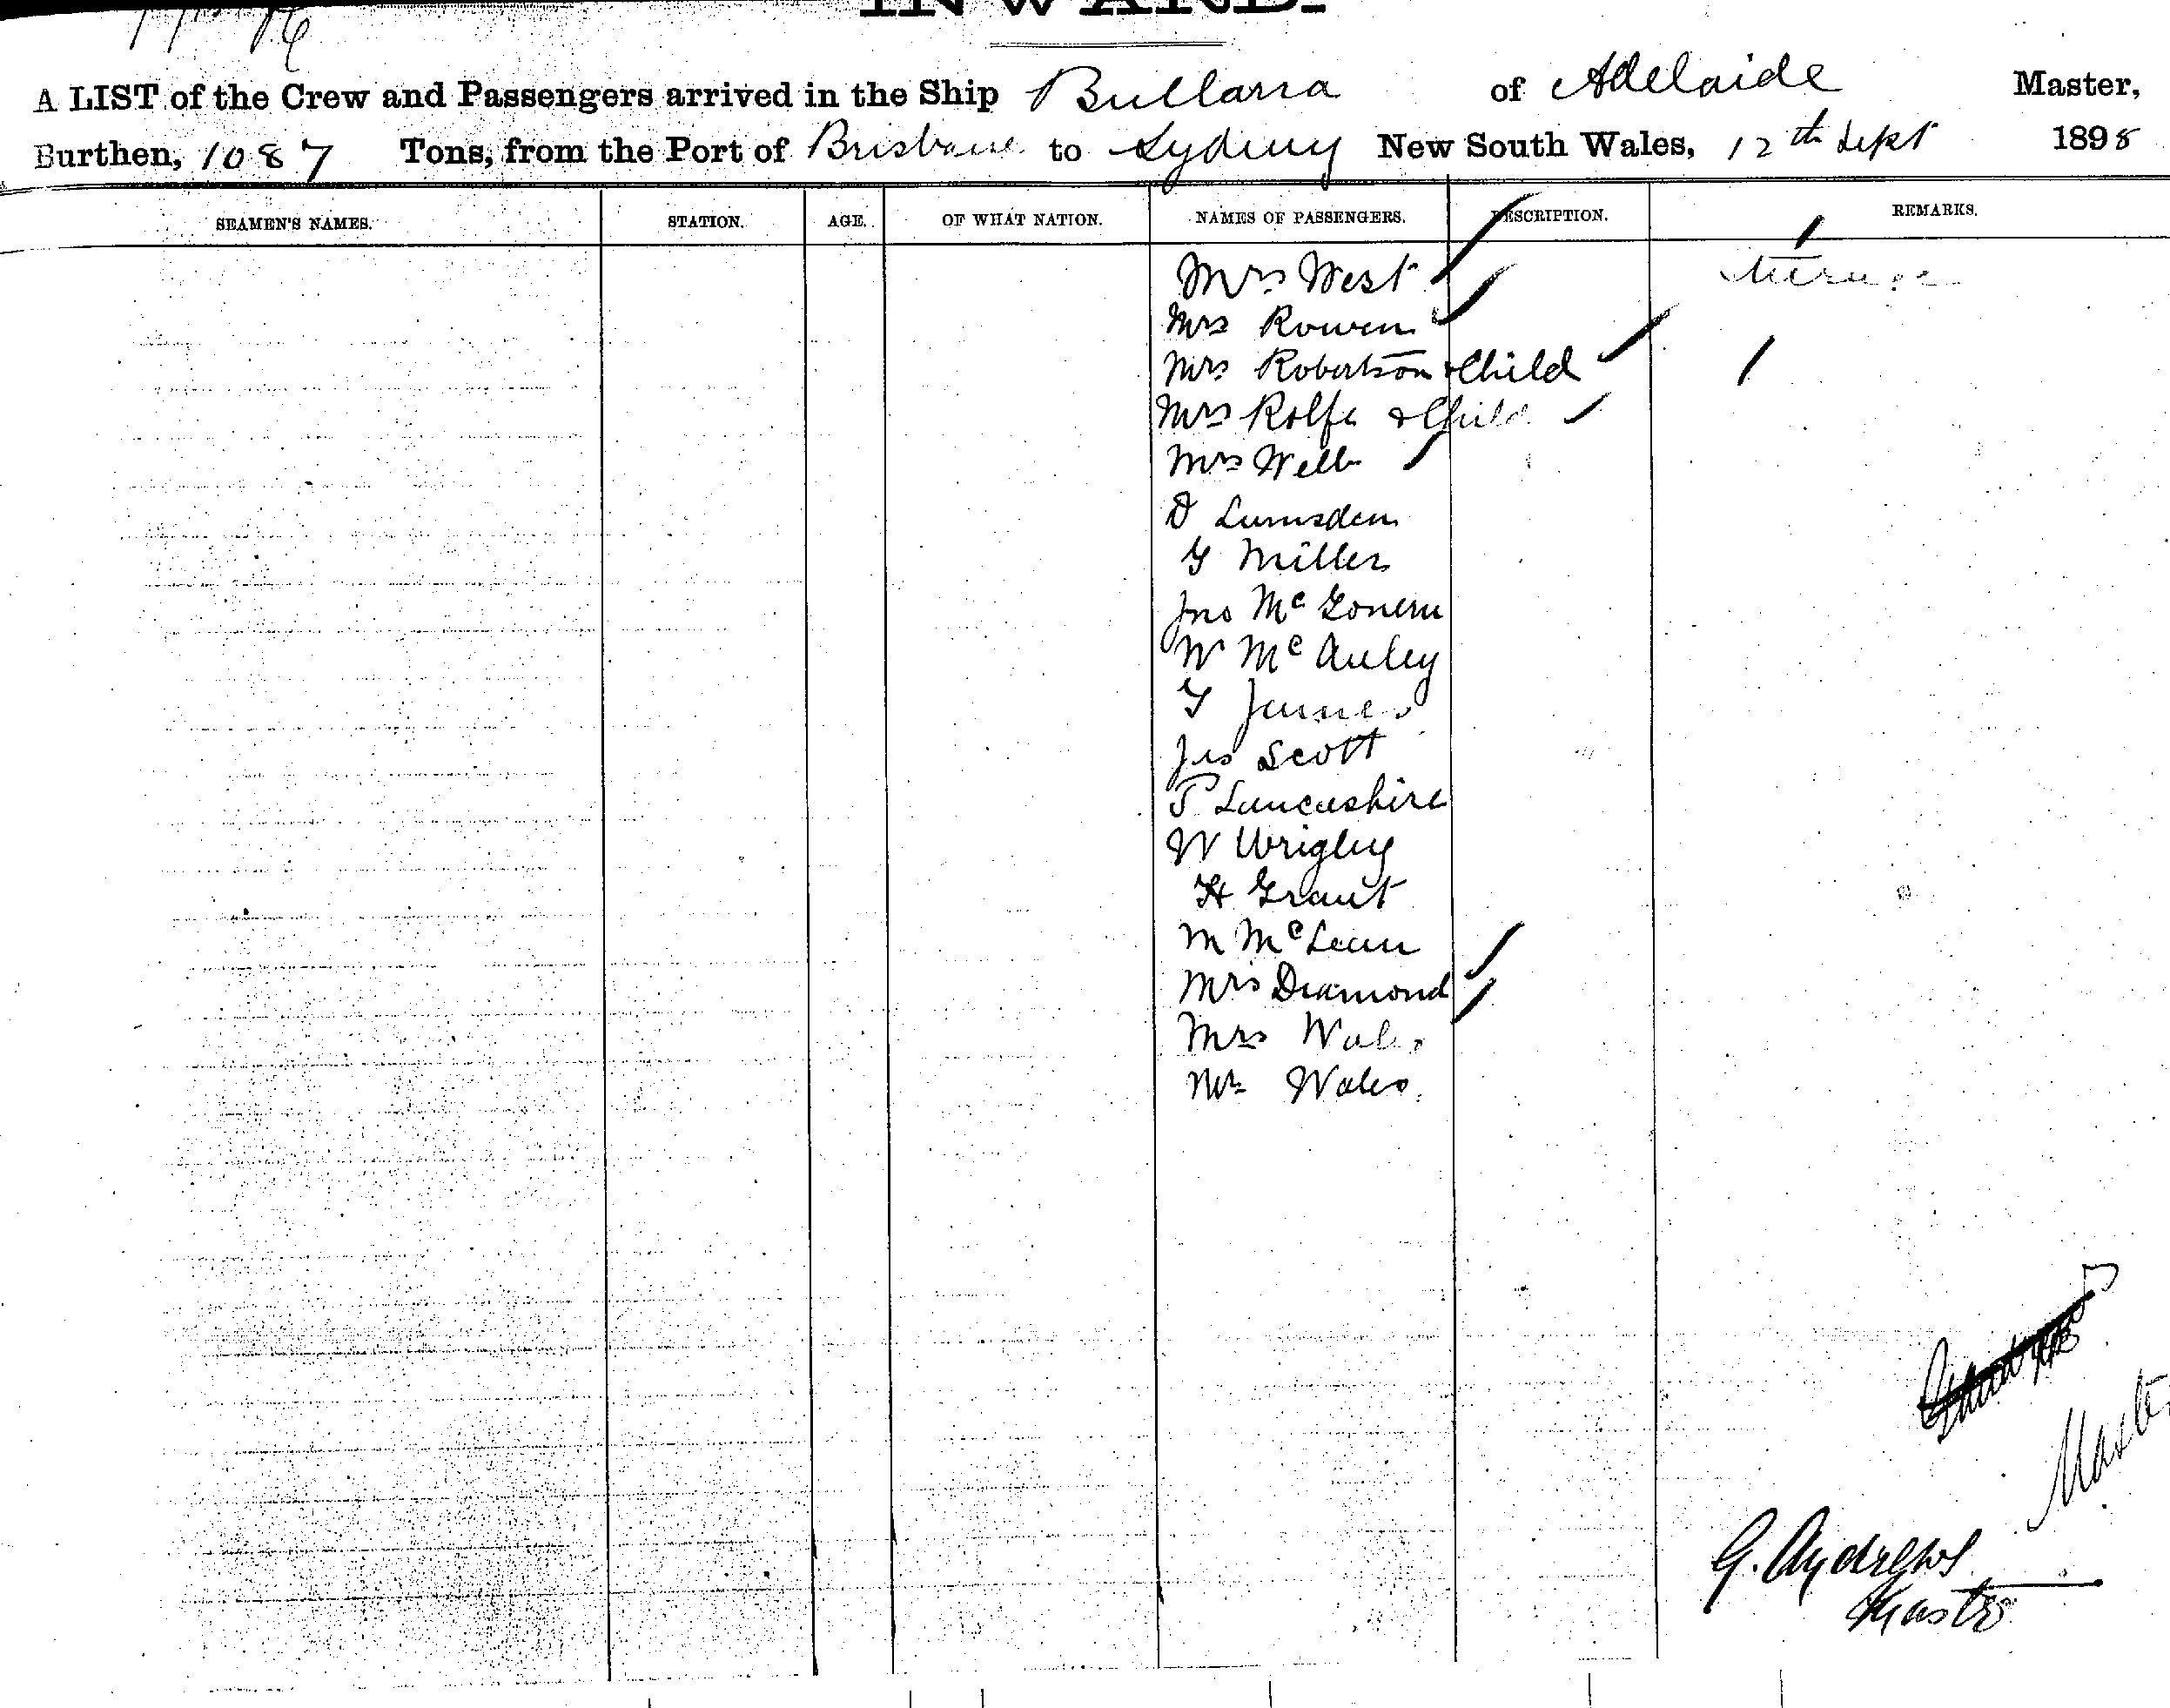 INWARD.
A LIST of the Crew and Passengers arrived in the Ship Bullarra of Adelaide Master,
Burthen, 1087 Tons, from the Port of Brisbane to Sydney New South Wales, 12th Sept 1898
SEAMEN'S NAMES. STATION. AGE. OF WHAT NATION. NAMES OF PASSENGERS. DESCRIPTION. REMARKS.
Mrs West
Mrs Rowen
Mrs Robertson & Child
Mrs Rolfe & Child
Mrs Webb
D Lumsden
G Miller
Jno Mc Gonern
W Mc Auley
G James
Jas Scott
P Lancashire
W Wrigley
H Grant
M McLean
Mrs Diamond
Mrs Wales
Mr Wales.
Master
G. Andrews
Master